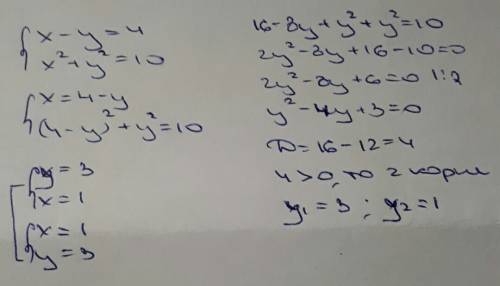 { x - y = 4
x² + y² = 10
{ x = 4 - y
(4 - y)² + y² = 10
[ { y = 3
x = 1
{ x = 1
y = 3
16 - 8y + y² + y² = 10
2y² - 8y + 16 - 10 = 0
2y² - 8y + 6 = 0 | : 2
y² - 4y + 3 = 0
D = 16 - 12 = 4
4 > 0, то 2 корня
y₁ = 3 ; y₂ = 1